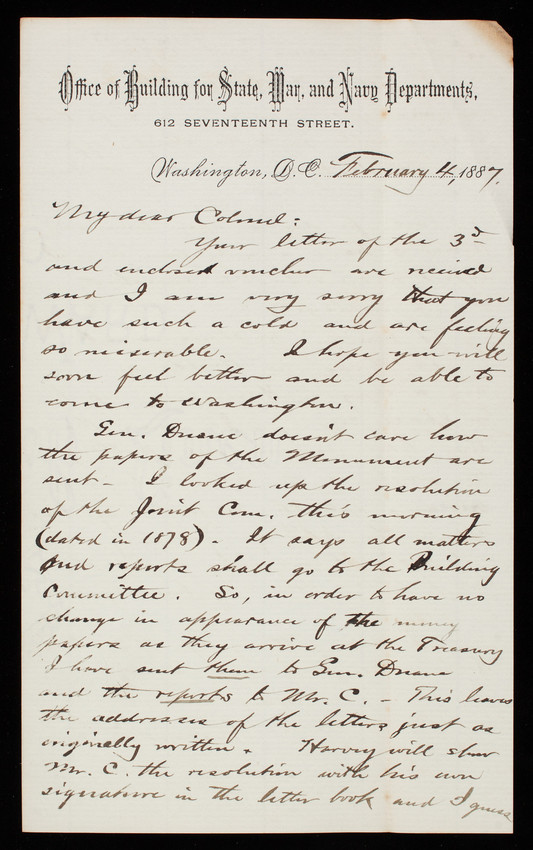 Office of Building for State, War, and Navy Departments,
612 SEVENTEENTH STREET.
Washington, D.C. February 4, 1887.
My dear Colonel:
Your letter of the 3d
and enclosed voucher are received
and I am very sorry that you
have such a cold and are feeling
so miserable. I hope you will
soon feel better and be able to
come to Washington.
Gen. Duane doesn't care how
the papers of the Monument are
sent - I looked up the resolution
of the Joint Com. this morning
(dated in 1878) - It says all matters
and reports shall go to the Building
Committee. So, in order to have no
change in appearance of the money
papers as they arrive at the Treasury
I have sent them to Gen. Duane
and the reports to Mr. C. - This leaves
the addresses of the letters just as
originally written. Harvey will show
Mr. C. the resolution with his own
signature in the letter book and I guess